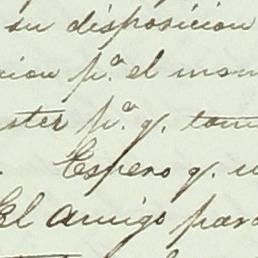 su disposicion
cion p.ª el mom
ster p.ª q. tom
Espero q. u
El amigo para